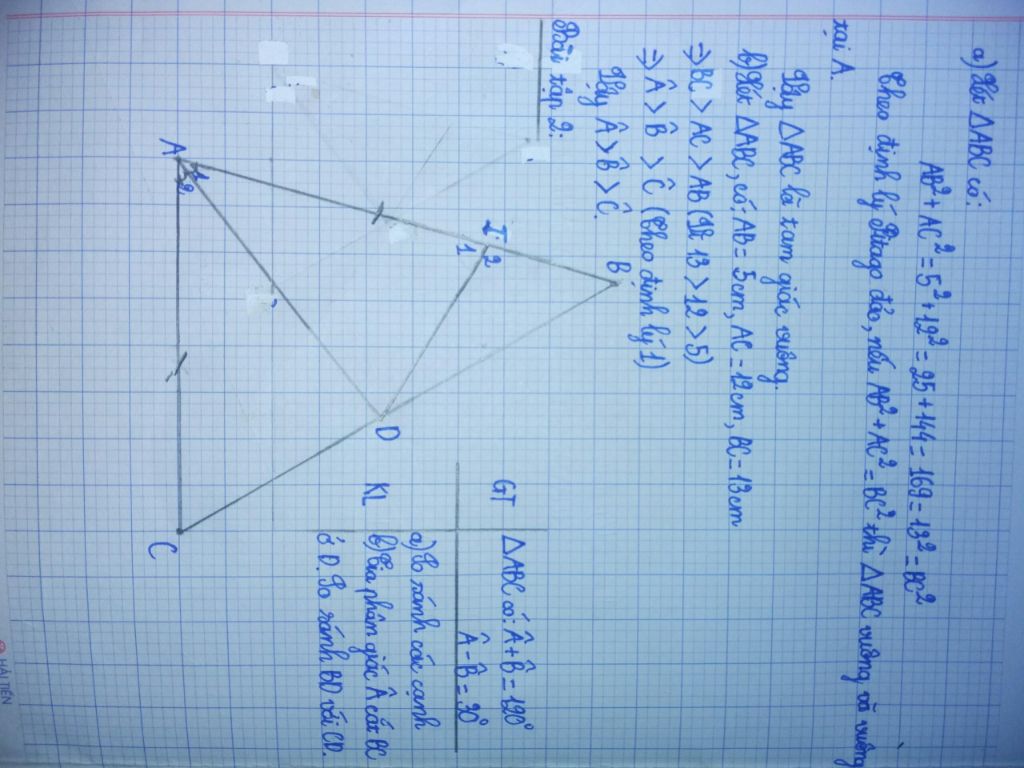 a) Xét ΔABC có:
AB² + AC² = 5² + 12² = 25 + 144 = 169 = 13² = BC²
Theo định lý Pitago đảo, nếu AB² + AC² = BC² thì ΔABC vuông và vuông
tại A.
Vậy ΔABC là tam giác vuông.
b) Xét ΔABC, có: AB = 5cm, AC = 12cm, BC = 13cm
⇒ BC > AC > AB (Vì 13 > 12 > 5)
⇒ Â > B̂ > Ĉ (Theo định lý 1)
Vậy Â > B̂ > Ĉ.
Bài tập 2:
B
I
2
1
A
1
2
D
C
GT
ΔABC có: Â + B̂ = 120°
Â - B̂ = 30°
KL
a) So sánh các cạnh
b) Tia phân giác Â cắt BC
ở D. So sánh BD với CD.
HẢI TIẾN